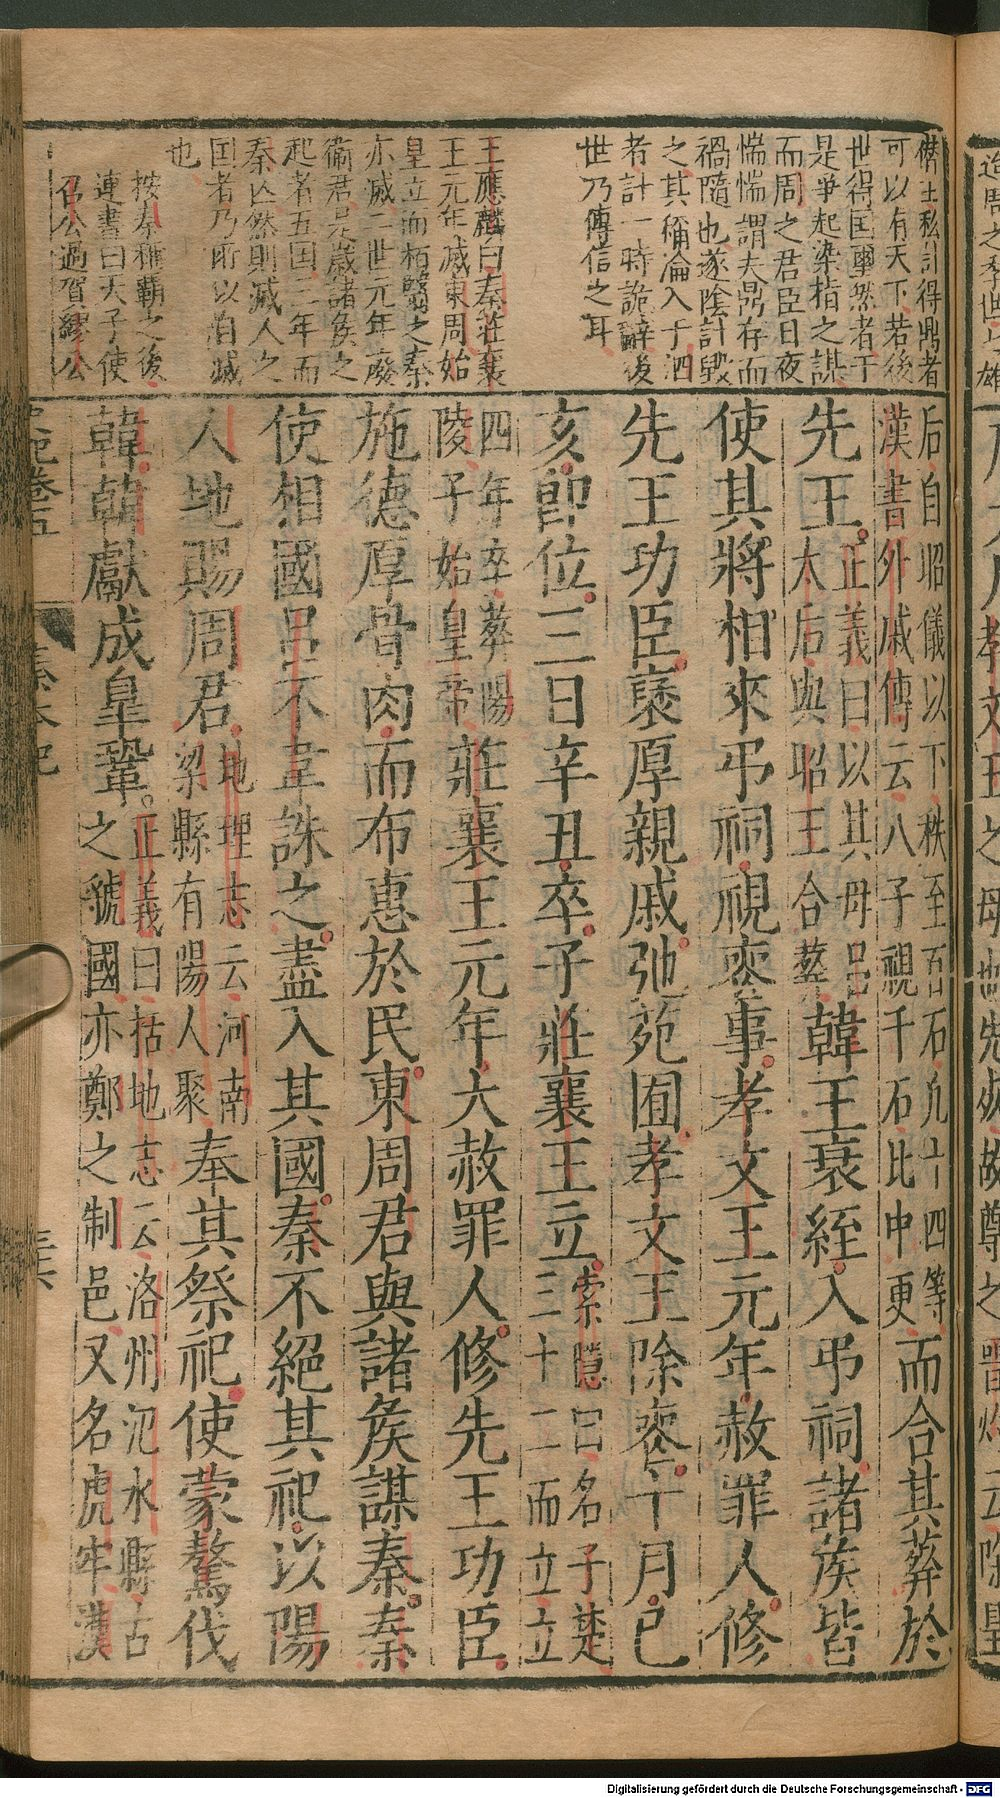 儕士私計得鼎者
可以有天下若後
世得国璽然者于
是爭起染指之謀
而周之君臣日夜
惴惴謂夫鼎存而
禍隨也遂陰計毀
之其稱淪入于泗
者計一時詭辭後
世乃傳信之耳
王應麟曰秦莊襄
王元年滅東周始
皇立而柏翳之秦
亦滅二世元年廢
衛君是歲諸矦之
起者五国三年而
秦亾然則滅人之
国者乃所以自滅
也
按秦稱霸之後
連書曰天子使
召公過賀繆公
后自昭儀以下秩至百石凡十四等
漢書外戚傳云八子視千石比中更
而合其葬於
先王
正義曰以其母呂
太后與昭王合葬
韓王衰絰入弔祠諸矦皆
使其將相來弔祠視喪事孝文王元年赦罪人修
先王功臣襃厚親戚弛苑囿孝文王除喪十月己
亥即位三日辛丑卒子莊襄王立
索隱曰名子楚
三十二而立立
四年卒葬陽
陵子始皇帝
莊襄王元年大赦罪人修先王功臣
施德厚骨肉而布惠於民東周君與諸矦謀秦秦
使相國呂不韋誅之盡入其國秦不絕其祀以陽
人地賜周君
地理志云河南
梁縣有陽人聚
奉其祭祀使蒙驁伐
韓韓獻成皐鞏
正義曰括地志云洛州汜水縣古
之虢國亦鄭之制邑又名虎牢漢
史記卷五
秦本紀
Digitalisierung gefördert durch die Deutsche Forschungsgemeinschaft - DFG